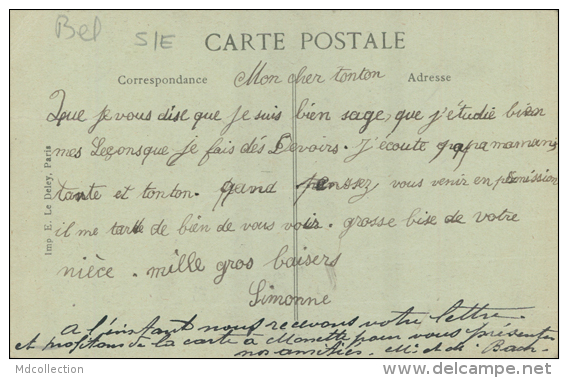 Bel
S/E
CARTE POSTALE
Correspondance
Mon cher tonton
Adresse
Que je vous dise que je suis bien sage, que j'étudie bien
mes Leçons que je fais dés Devoirs. J'écoute papa maman,
tante et tonton. Qand penssez vous venir en permission
il me tarde de bien de vous voir. grosse bise de votre
nièce. mille gros baisers
Simonne
A l'instant nous recevons votre lettre
et profitons de la carte à Monette pour vous présenter
nos amitiés. Bach.
Imp E. Le Deley, Paris
Mdcollection
http://www.delcampe.net